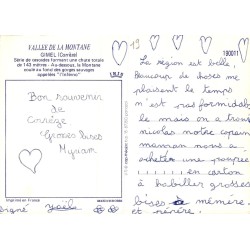 VALLEE DE LA MONTANE
GIMEL (Corrèze)
Série de cascades formant une chute totale
de 143 mètres - Au-dessus, la Montane
coule au fond des gorges sauvages
appelées "l'Inferno"
Bon souvenir
de
Corrèze
Grosses bises
Myriam
Imprimé en France
Yaële
19
190011
La région est belle,
Beaucoup de choses me
plaisent le temps
n'est pas formidable
le mais on a trouvé
nicolas notre copain
maman nous a
acheter une poupée
en carton
à babiller grosses
bises à mémère
et pépère.